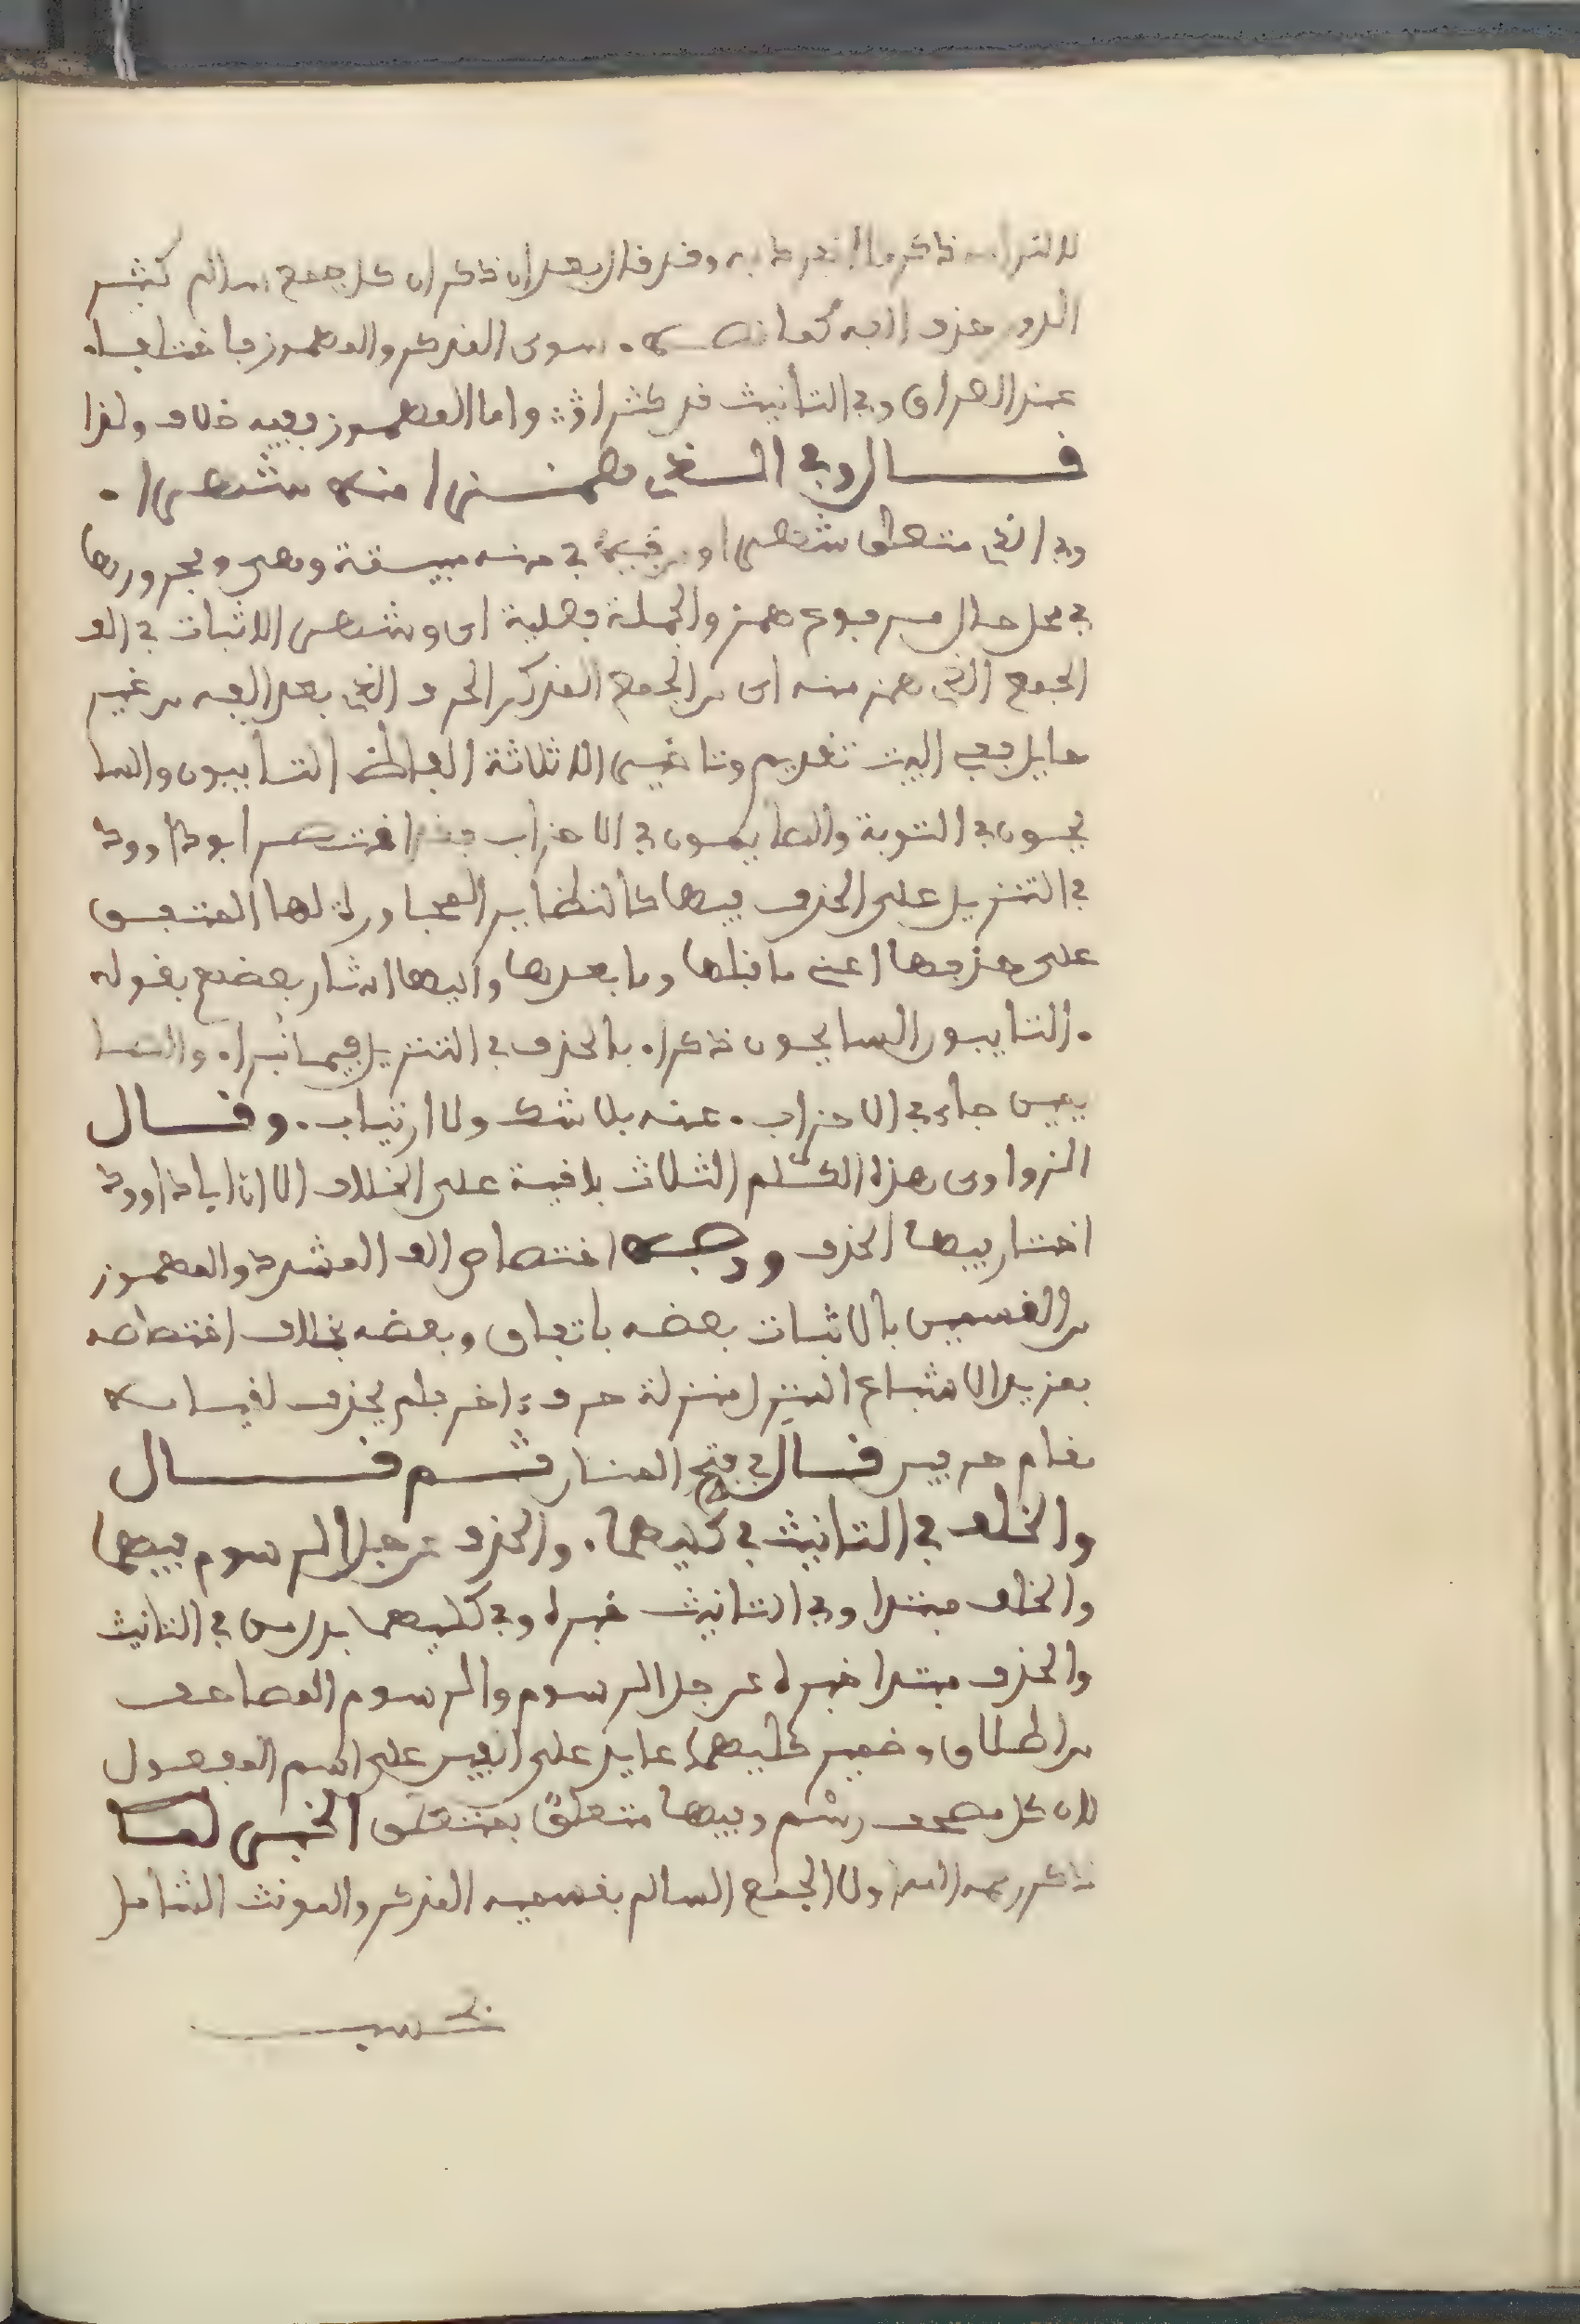 لالتزامه ذكر ما انفرد به وقد قال بعد ان ذكر ان كل جمع سالم كثير
الدور حذف الفه كما نصه . سوى المشدد والمهموز فاختلفا .
عند العراق وفي التانيث قد كثرا واما المهموز ففيه خلاف ولذا
قال وفي الذي همزت منه شهرا .
وفي الذي متعلق بشهرا و من في منه مبينة وهي ومجرورها
في محل حال مرفوع همز والجملة فعلية اى وشهر الاثبات في الف
الجمع الذي همز منه اى من الجمع المذكر الحرف الذي بعد الفه من غير
حايل ففي البيت تقديم وتاخير الا ثلاثة الفاظ التايبون والسا
يحون في التوبة والصايمين في الاحزاب فقد اقتصر ابو داوود
في التنزيل على الحذف فيها كالنظاير المجاورة لها المتفق
على حذفها اعني ما قبلها وما بعدها واليها اشار بعضهم بقوله
. التايبون السايحون ذكرا . بالحذف في التنزيل فيما شهرا . والصا
يمين جاء في الاحزاب . عنه بلا شك ولا ارتياب . وقال
الزواوى هذه الكلم الثلاث باقية على الخلاف الا ان ابا داوود
اختار فيها الحذف ووجه اختصاص الف المشدد والمهموز
من القسمين بالاثبات بعضه باتفاق وبعضه بخلاف اختصاصه
بمزيد الاشباع المنزل منزلة حرف اخر فلم يحذف لقيامه
مقام حرفين قال في فتح المنان ثم قال
والخلف في التانيث في كليهما . والحذف عن جل الرسوم فيهما
والخلف مبتدا وفي التانيث خبره وفي كليهما بدل من في التانيث
والحذف مبتدا خبره عن جل الرسوم والرسوم المصاحف
من اطلاق وضمير كليهما عايد على اسم المفعول
لان كل مصحف رسم وفيهما متعلق بمتعلق الخبر لما
ذكر رحمه الله اولا الجمع السالم بقسميه المذكر والمونث الشامل